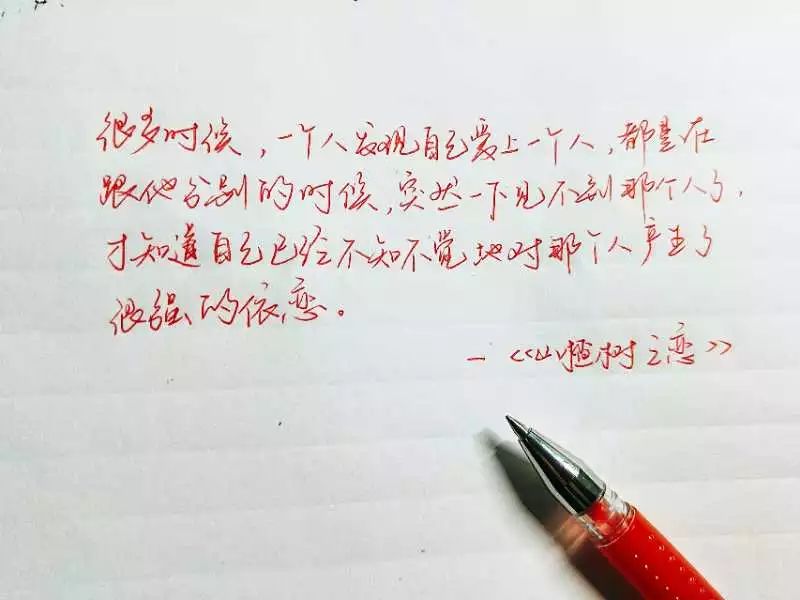 很多时候，一个人发现自己爱上一个人，都是在
跟他分别的时候，突然一下见不到那个人了，
才知道自己已经不知不觉地对那个人产生了
很强的依恋。
—《山楂树之恋》